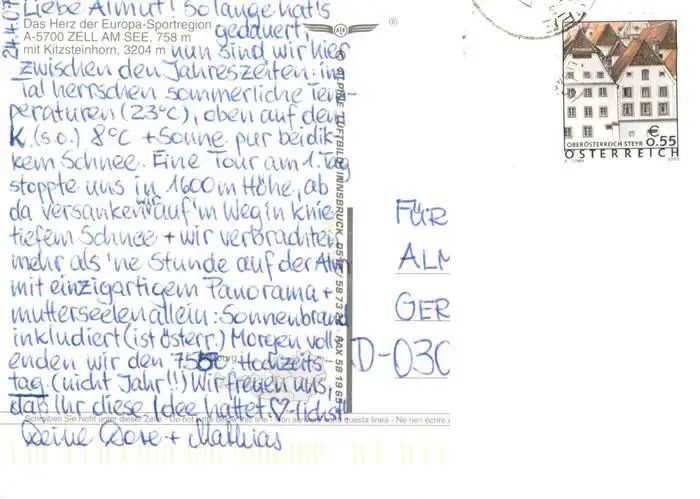 24.4.07
Liebe Almut! So lange hat's
gedauert,
nun sind wir hier
zwischen den Jahreszeiten: im
Tal herrschen sommerliche Tem-
peraturen (23°C), oben auf dem
K. (s.o.) 8°C + Sonne pur bei dik-
kem Schnee. Eine Tour am 1. Tag
stoppte uns in 1600m Höhe, ab
da versanken wir auf'm Weg in knie-
tiefem Schnee + wir verbrachten
mehr als 'ne Stunde auf der Alm
mit einzigartigem Panorama +
mutterseelenallein: Sonnenbrand
inkludiert (ist österr.) Morgen voll-
enden wir den 7550 Hochzeits
tag. (nicht Jahr!!) Wir freuen uns,
daß Ihr diese Idee hattet ♡-lichst!
Deine Dore + Mathias
Das Herz der Europa-Sportregion
A-5700 ZELL AM SEE, 758 m
mit Kitzsteinhorn, 3204 m
® ALPINE LUFTBILD INNSBRUCK
FAX 581965
Schreiben Sie nicht unter dieser Zeile - Do not write below this line - Non scrivere sotto questa linea - Ne rien écrire
FÜR
ALM
GER
D-030
€
0.55
OBERÖSTERREICH STEYR
ÖSTERREICH